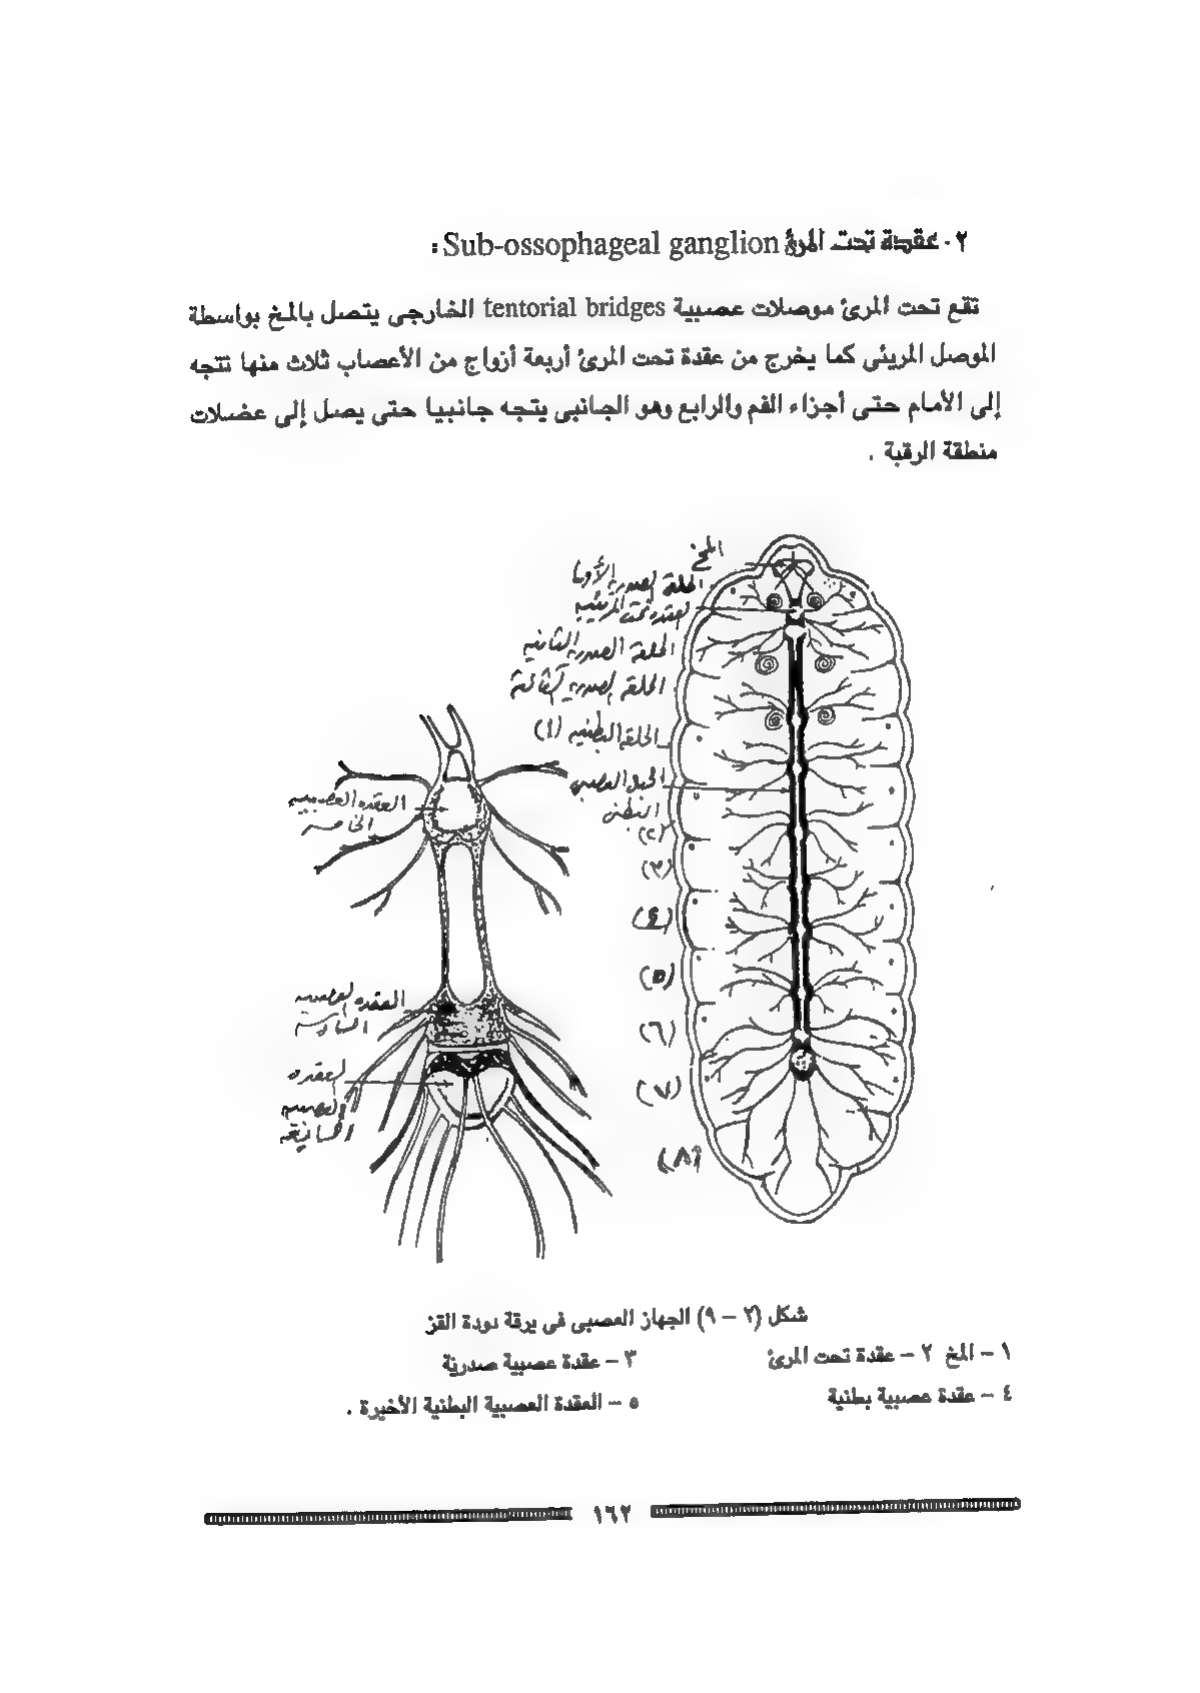 ٢- عقدة تحت المرئ Sub-ossophageal ganglion :
تقع تحت المرئ موصلات عصبية tentorial bridges الخارجى يتصل بالمخ بواسطة
الموصل المريئى كما يخرج من عقدة تحت المرئ أربعة أزواج من الأعصاب ثلاث منها تتجه
إلى الأمام حتى أجزاء الفم والرابع وهو الجانبى يتجه جانبيا حتى يصل إلى عضلات
منطقة الرقبة .
المخ
الحلقة الصدرية الأولى
العقدة تحت المريئية
الحلقة الصدرية الثانية
الحلقة الصدرية الثالثة
الحلقة البطنية (١)
الحبل العصبى
البطنى
(٢)
(٣)
(٤)
(٥)
(٦)
(٧)
(٨)
العقدة العصبية
الخامسة
العقدة العصبية
السادسة
العقدة
العصبية
السابعة
شكل (٢ – ٩) الجهاز العصبى فى يرقة دودة القز
١ – المخ ٢ – عقدة تحت المرئ ٣ – عقدة عصبية صدرية
٤ – عقدة عصبية بطنية ٥ – العقدة العصبية البطنية الأخيرة .
١٦٢